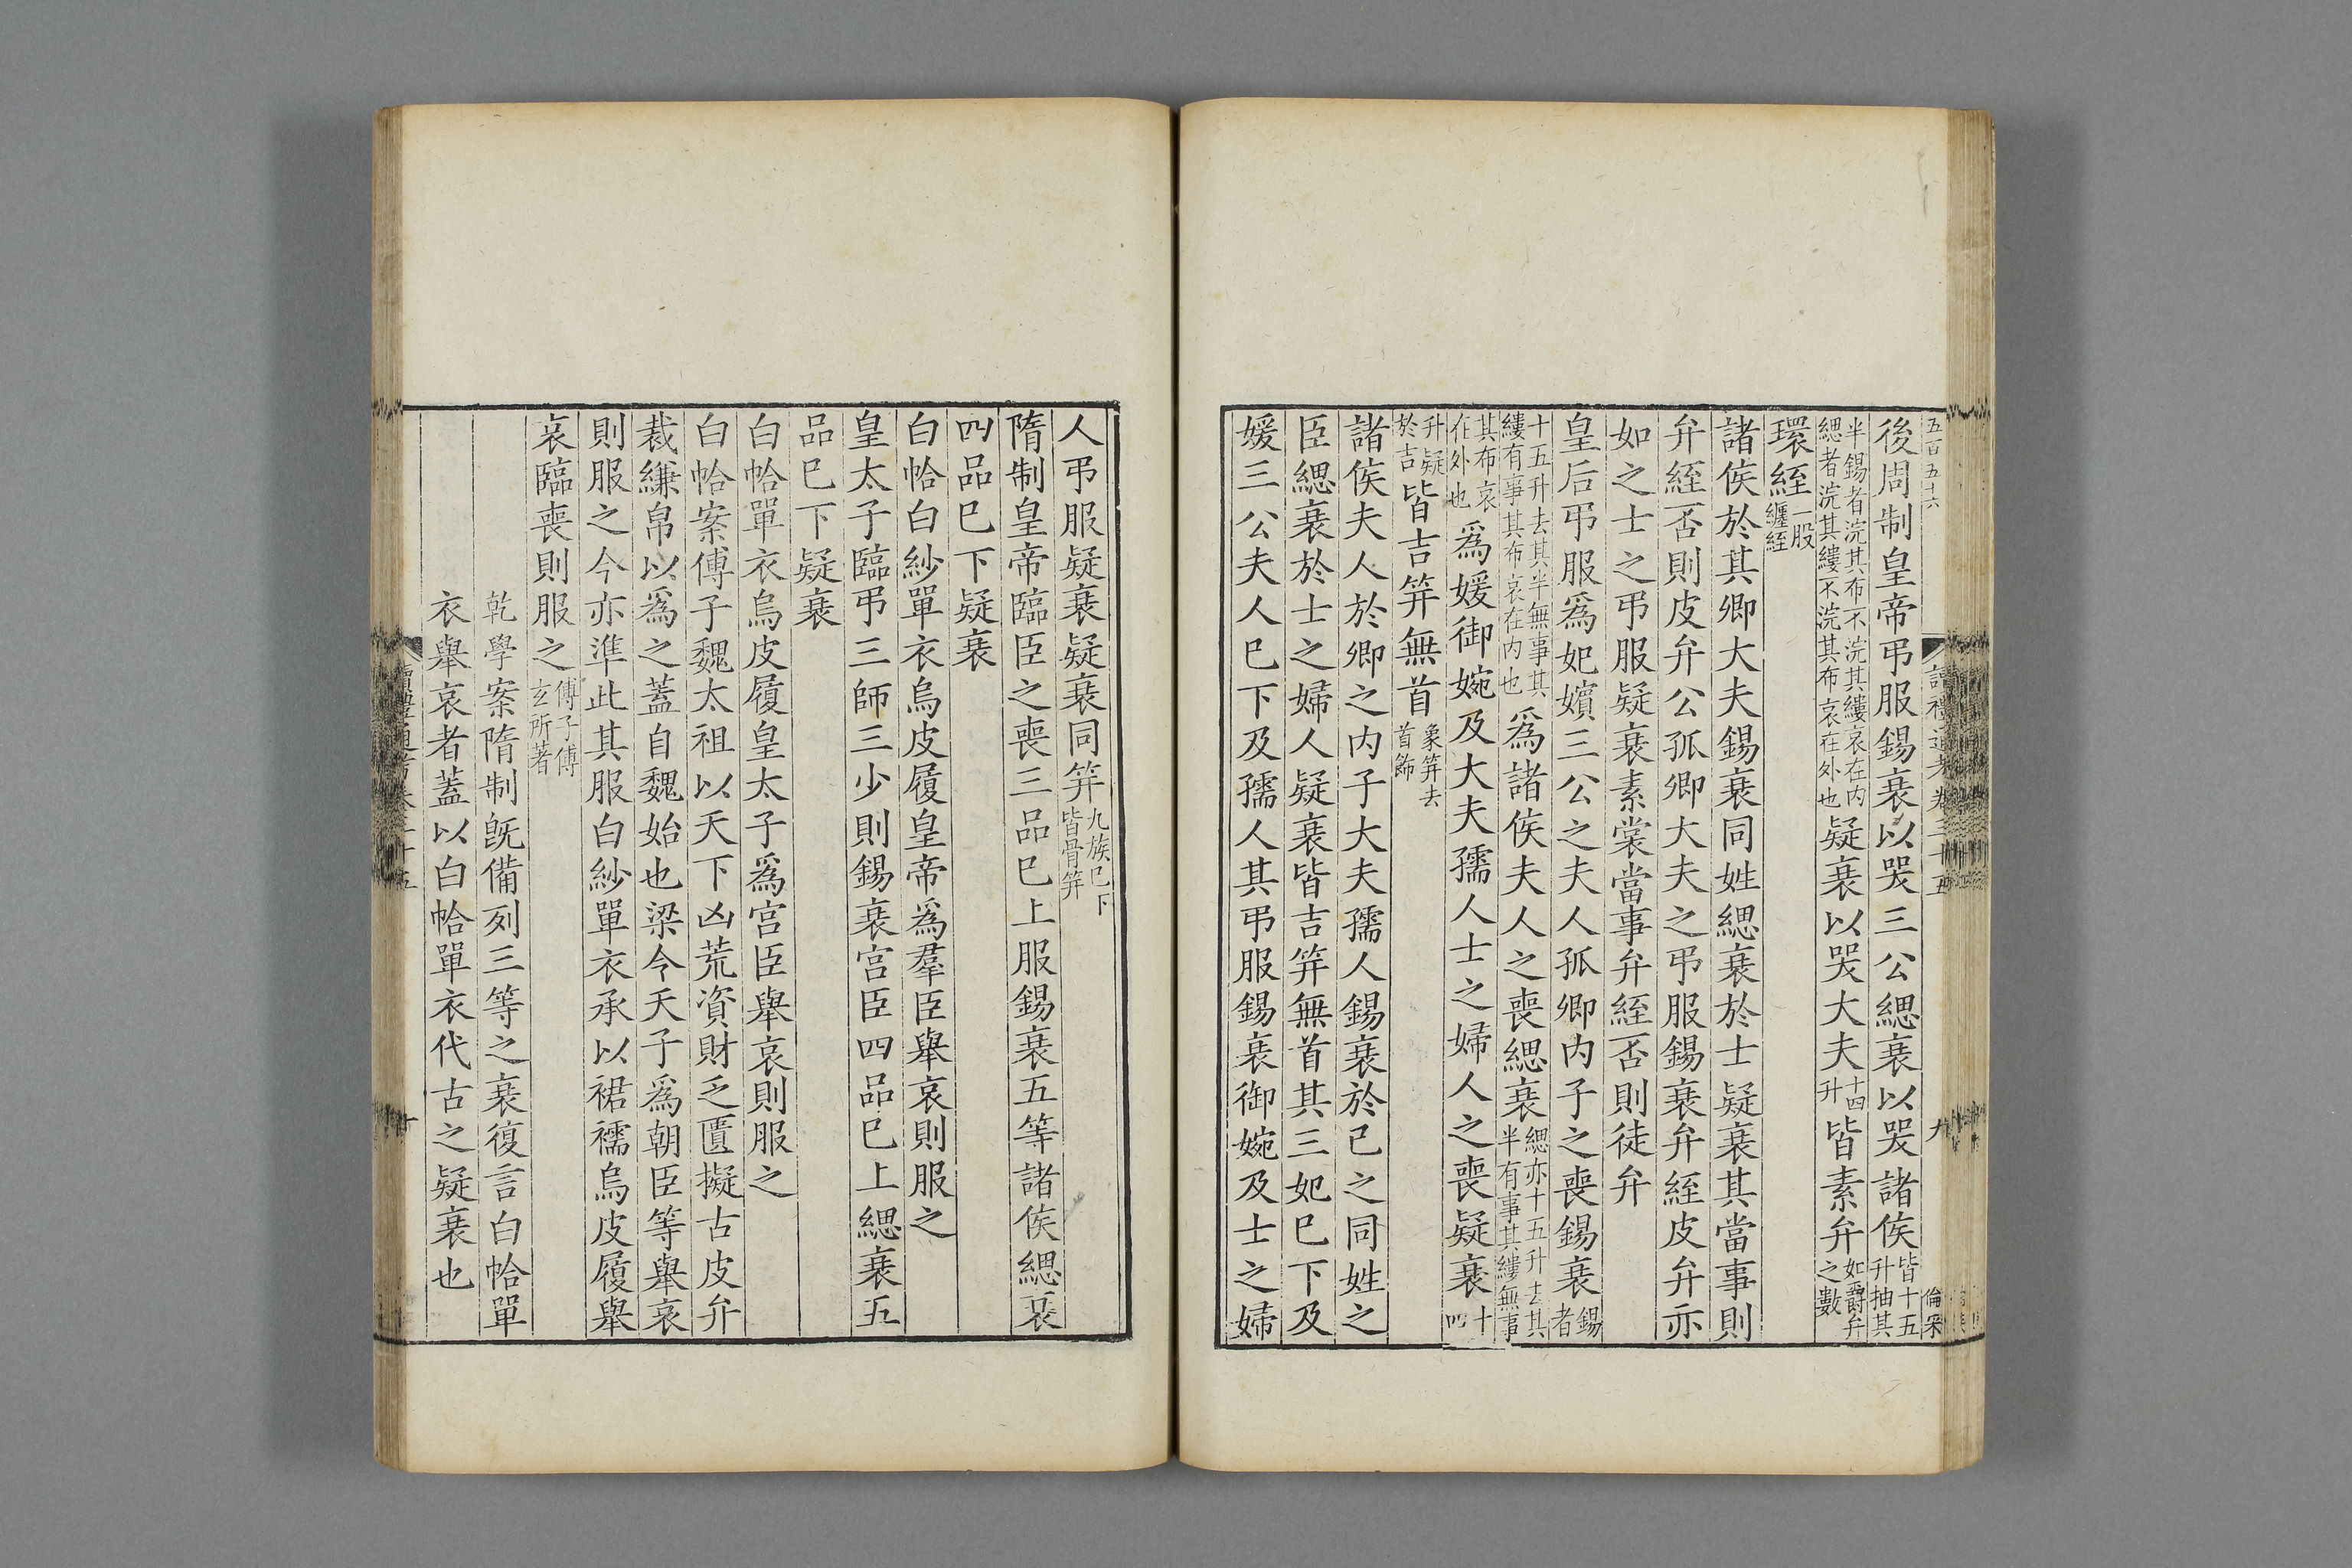 五百五十六
讀禮通考卷三十五
九
倫梁
後周制皇帝弔服錫衰以哭三公緦衰以哭諸侯皆十五升抽其
半錫者浣其布不浣其縷哀在内緦者浣其縷不浣其布哀在外也疑衰以哭大夫十四升皆素弁如爵弁之數
環絰一股纏絰
諸侯於其卿大夫錫衰同姓緦衰於士疑衰其當事則
弁絰否則皮弁公孤卿大夫之弔服錫衰弁絰皮弁亦
如之士之弔服疑衰素裳當事弁絰否則徒弁
皇后弔服爲妃嬪三公之夫人孤卿内子之喪錫衰錫者
十五升去其半無事其縷有事其布哀在内也爲諸侯夫人之喪緦衰緦亦十五升去其半有事其縷無事
其布哀在外也爲媛御婉及大夫孺人士之婦人之喪疑衰十四
升疑於吉皆吉笄無首象笄去首飾
諸侯夫人於卿之内子大夫孺人錫衰於己之同姓之
臣緦衰於士之婦人疑衰皆吉笄無首其三妃巳下及
媛三公夫人巳下及孺人其弔服錫衰御婉及士之婦
人弔服疑衰疑衰同笄九族巳下皆骨笄
隋制皇帝臨臣之喪三品巳上服錫衰五等諸侯緦衰
四品巳下疑衰
白帢白紗單衣烏皮履皇帝爲羣臣舉哀則服之
皇太子臨弔三師三少則錫衰宮臣四品巳上緦衰五
品巳下疑衰
白帢單衣烏皮履皇太子爲宮臣舉哀則服之
白帢案傅子魏太祖以天下凶荒資財乏匱擬古皮弁
裁縑帛以爲之蓋自魏始也梁令天子爲朝臣等舉哀
則服之今亦準此其服白紗單衣承以裙襦烏皮履舉
哀臨喪則服之傅子傅玄所著
乾學案隋制旣備列三等之衰復言白帢單
衣舉哀者蓋以白帢單衣代古之疑衰也
讀禮通考卷三十五
十